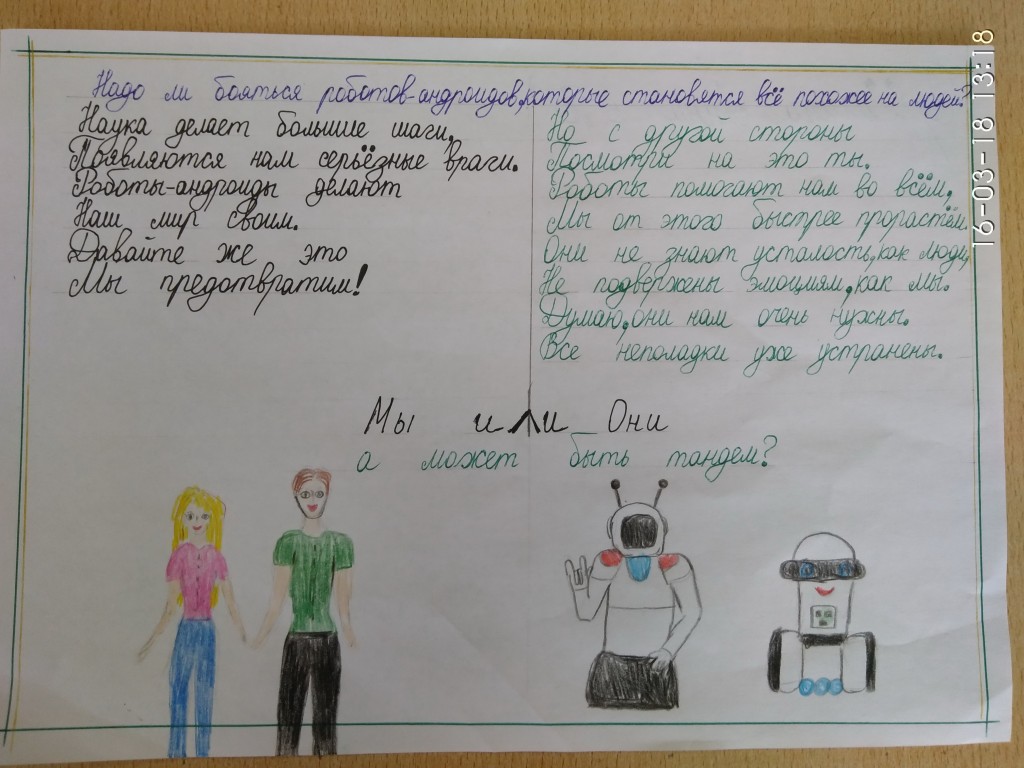 Надо ли бояться роботов-андроидов,которые становятся всё похожее на людей?
Наука делает большие шаги,
Появляются нам серьёзные враги.
Роботы-андроиды делают
Наш мир своим.
Давайте же это
Мы предотвратим!
Но с другой стороны
Посмотри на это ты.
Роботы помогают нам во всём,
Мы от этого быстрее прорастём.
Они не знают усталость,как люди,
Не подвержены эмоциям,как мы.
Думаю,они нам очень нужны.
Все неполадки уже устранены.
Мы или Они
а может быть тандем?
16-03-18 13:18